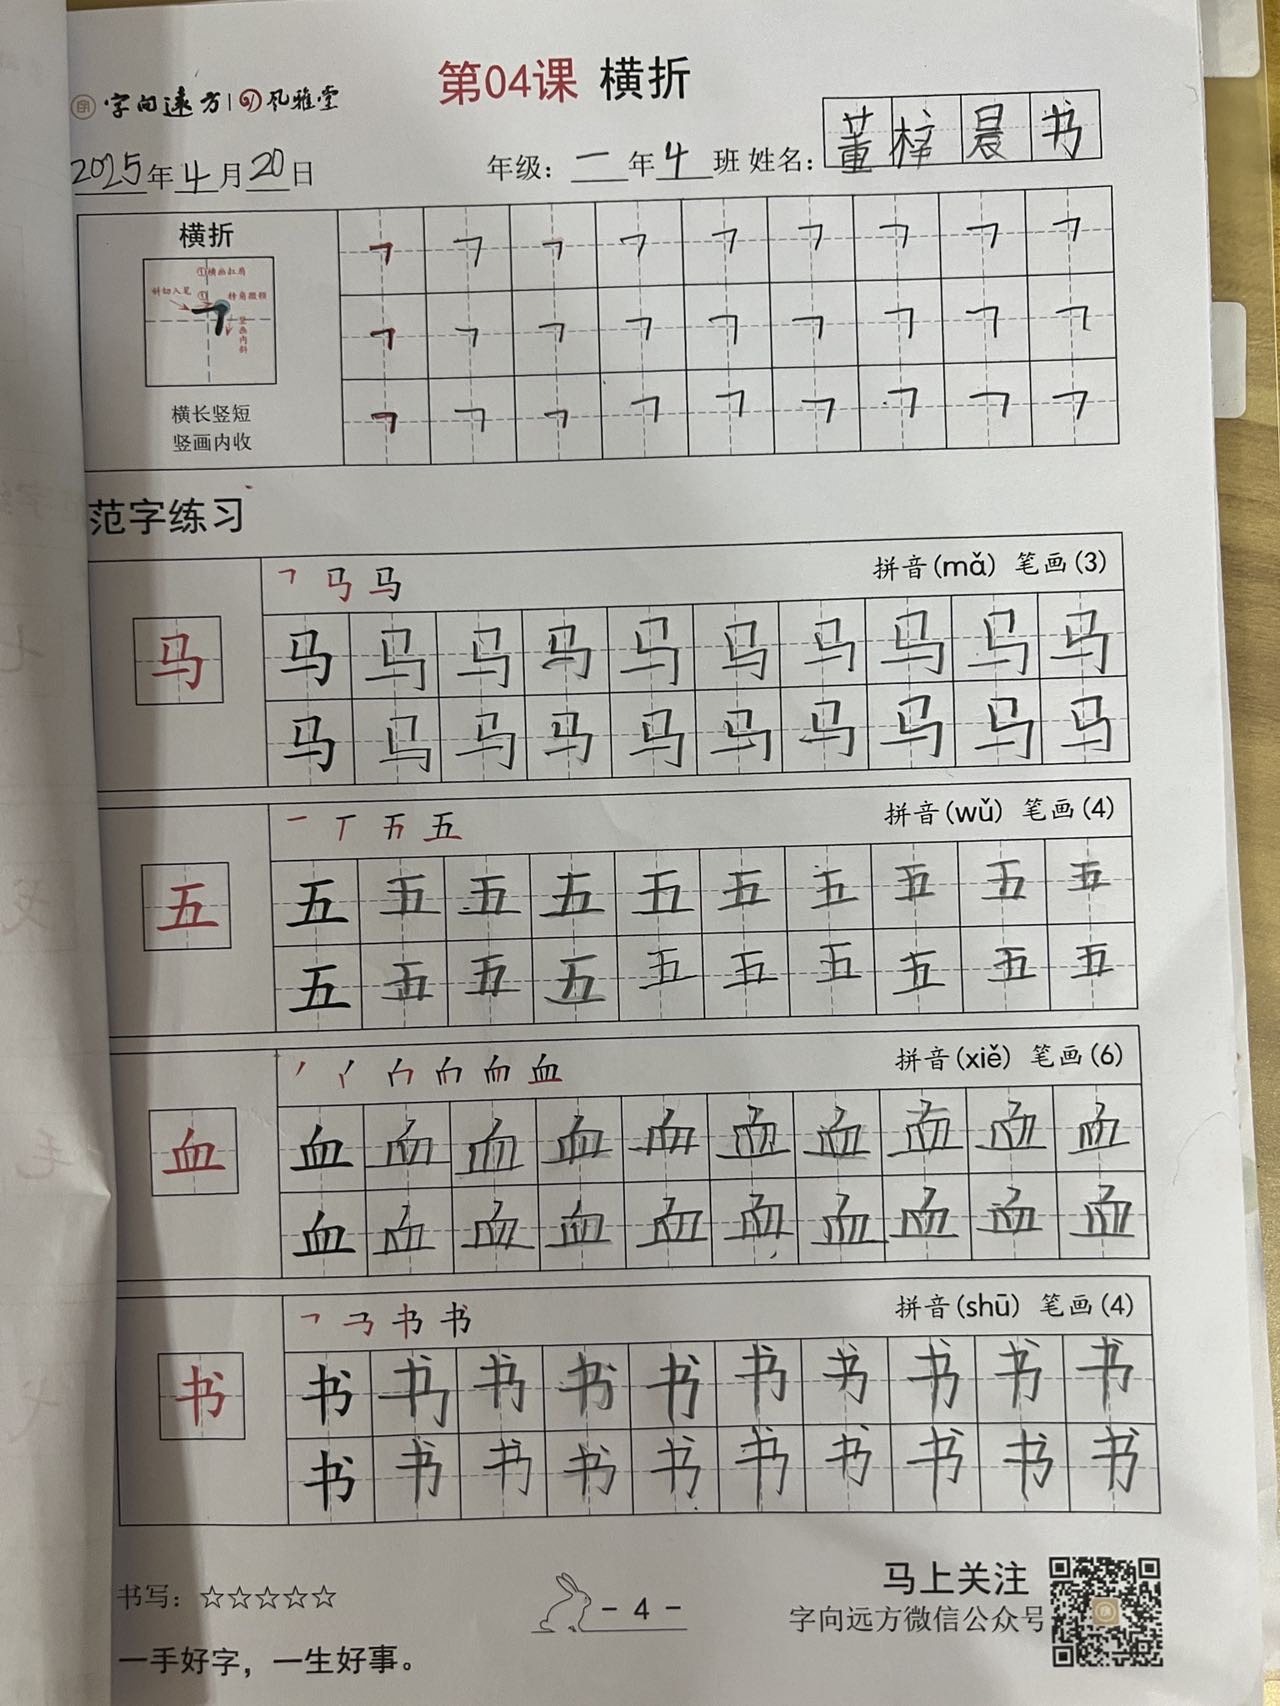 第04课 横折
字向远方 风雅堂
2025年4月20日 年级：一年4班 姓名：董梓晨书
横折
①横画扛肩
斜切入笔 ① 转角微顿
竖画内斜
横长竖短
竖画内收
范字练习
㇕ 马 马 拼音(mǎ) 笔画(3)
马 马 马 马 马 马 马 马 马 马 马
马 马 马 马 马 马 马 马 马 马
一 丅 五 五 拼音(wǔ) 笔画(4)
五 五 五 五 五 五 五 五 五 五 五
五 五 五 五 五 五 五 五 五 五
血 拼音(xiě) 笔画(6)
血 血 血 血 血 血 血 血 血 血 血
血 血 血 血 血 血 血 血 血 血
㇕ 书 书 拼音(shū) 笔画(4)
书 书 书 书 书 书 书 书 书 书 书
书 书 书 书 书 书 书 书 书 书
书写：☆☆☆☆☆ - 4 - 马上关注
字向远方微信公众号
一手好字，一生好事。